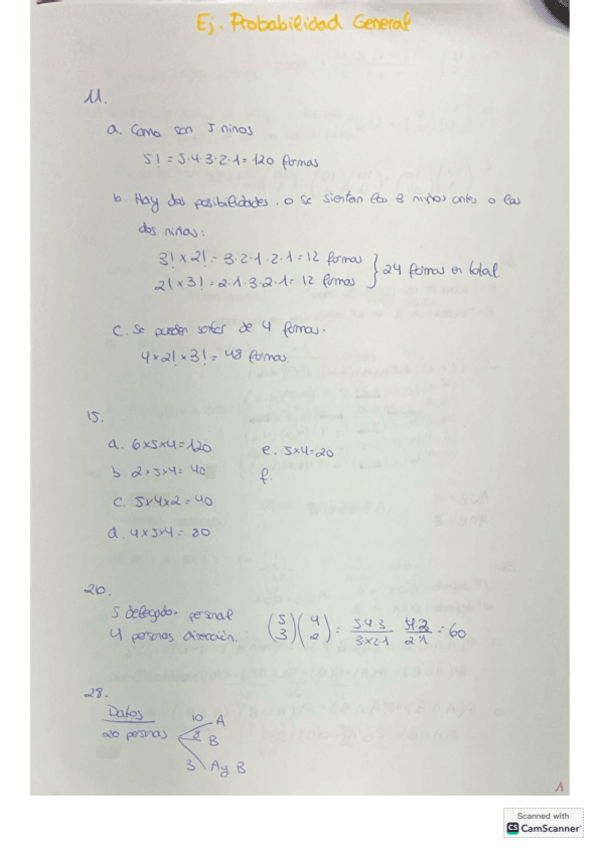 Ej. Probabilidad General
11.
a. Como son 5 niños
5! = 5·4·3·2·1 = 120 formas
b. Hay dos posibilidades. o se sientan los 3 niños antes o las
dos niñas:
3! x 2! = 3·2·1·2·1 = 12 formas
2! x 3! = 2·1·3·2·1 = 12 formas } 24 formas en total
c. Se pueden sentar de 4 formas.
4 x 2! x 3! = 48 formas
15.
a. 6x5x4=120 e. 5x4=20
b. 2x5x4= 40 f.
c. 5x4x2 = 40
d. 4x5x4 = 80
20.
5 delegados personal
4 personas dirección (5 3)(4 2) = 5·4·3 / 3x2·1 4·3 / 2·1 = 60
28.
Datos
20 personas
10 A
B
3 A y B
1
Scanned with
CS CamScanner